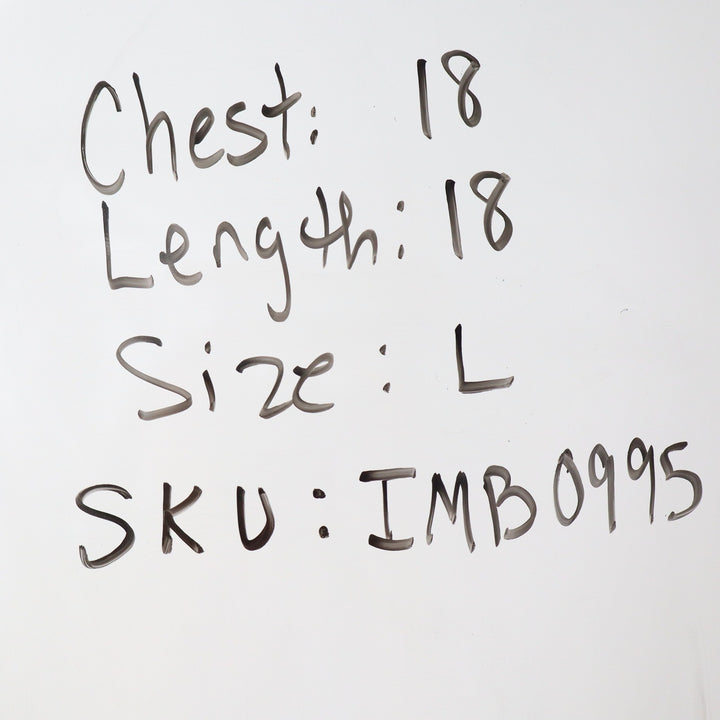 Chest: 18
Length: 18
Size: L
SKU: IMB0995